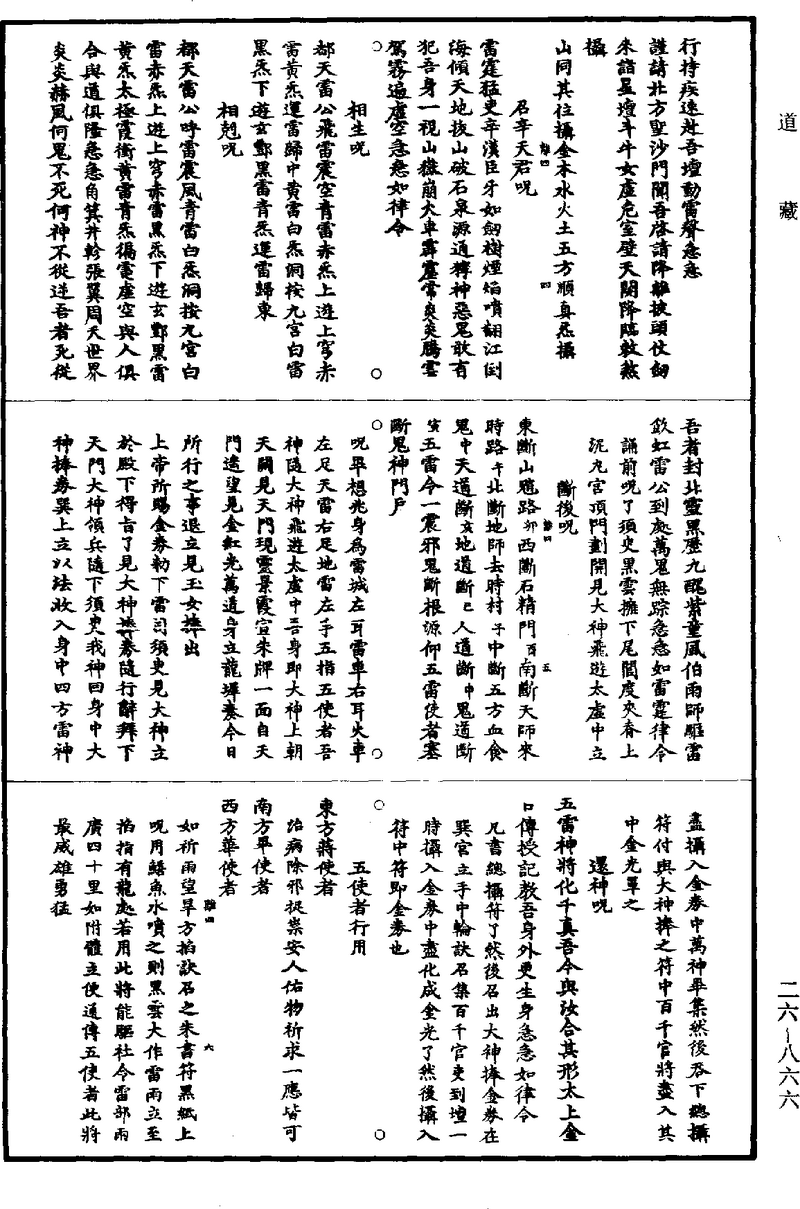 道藏
行持疾速赴吾壇動雷聲急急
謹請北方聖沙門聞吾啓請降離披頭仗劒
來詣星壇斗牛女虛危室壁天關降臨敕煞
攝
山同其位攝金木水火土五方順真炁攝
召辛天君呪
雷霆猛吏辛漢臣牙如劒樹煙焰噴翻江倒
海傾天地拔山破石泉源通轉神惡鬼敢有
犯吾身一視山嶽崩火車霹靂常炎炎騰雲
駕霧遍虛空急急如律令
相生呪
都天雷公飛雷震空青雷赤炁上遊上穹赤
雷黃炁運雷歸中黃雷白炁洞按九宮白雷
黑炁下遊玄酆黑雷青炁運雷歸東
相剋呪
都天雷公呼雷震風青雷白炁洞按九宮白
雷赤炁上遊上穹赤雷黑炁下遊玄酆黑雷
黃炁太極霞衝黃雷青炁徧霆虛空與人俱
合與道俱隆急急角箕井軫張翼周天世界
炎炎赫風何鬼不死何神不從逆吾者死從
吾者封北靈黑歷九醜紫童風伯雨師雕雷
欻虹雷公到處萬鬼無踪急急如雷霆律令
誦前呪了須臾黑雲擁下尾閭度夾脊上
泥九宮頂門劃開見大神飛遊太虛中立
斷後呪
東斷山魈路卯西斷石精門酉南斷天師來
時路午北斷地師去時村子中斷五方血食
鬼中天道斷亥地道斷巳人道斷中鬼道斷
寅五雷令一震邪鬼斷根源仰五雷使者塞
斷鬼神門戶
呪畢想兆身爲雷城左耳雷車右耳火車
左足天雷右足地雷左手五指五使者吾
神隨大神飛遊太虛中吾身即大神上朝
天闕見天門現雲景霞宣朱牌一面自天
門遙望見金紅光萬道身立龍墀奏今日
所行之事退立見玉女捧出
上帝所賜金券勅下雷司須臾見大神立
於殿下得旨了見大神捧券隨行辭拜下
天門大神領兵隨下須臾我神回身中大
神捧券巽上立以法收入身中四方雷神
盡攝入金券中萬神畢集然後吞下總攝
符付與大神捧之符中百千官將盡入其
中金光罩之
還神呪
五雷神將化千真吾今與汝合其形太上金
口傳授記教吾身外更生身急急如律令
凡書總攝符了然後召出大神捧金券在
巽宮立手中輪訣召集百千官吏到壇一
時攝入金券中盡化成金光了然後攝入
符中符即金券也
五使者行用
東方蔣使者
治病除邪捉祟安人佑物祈求一應皆可
南方畢使者
西方華使者
如祈雨望旱方掐訣召之朱書符黑紙上
呪用鱔魚水噴之則黑雲大作雷雨立至
掐指有龍處若用此將能驅社令雷部雨
廣四十里如附體立便通傳五使者此將
最威雄勇猛
二六—八六六